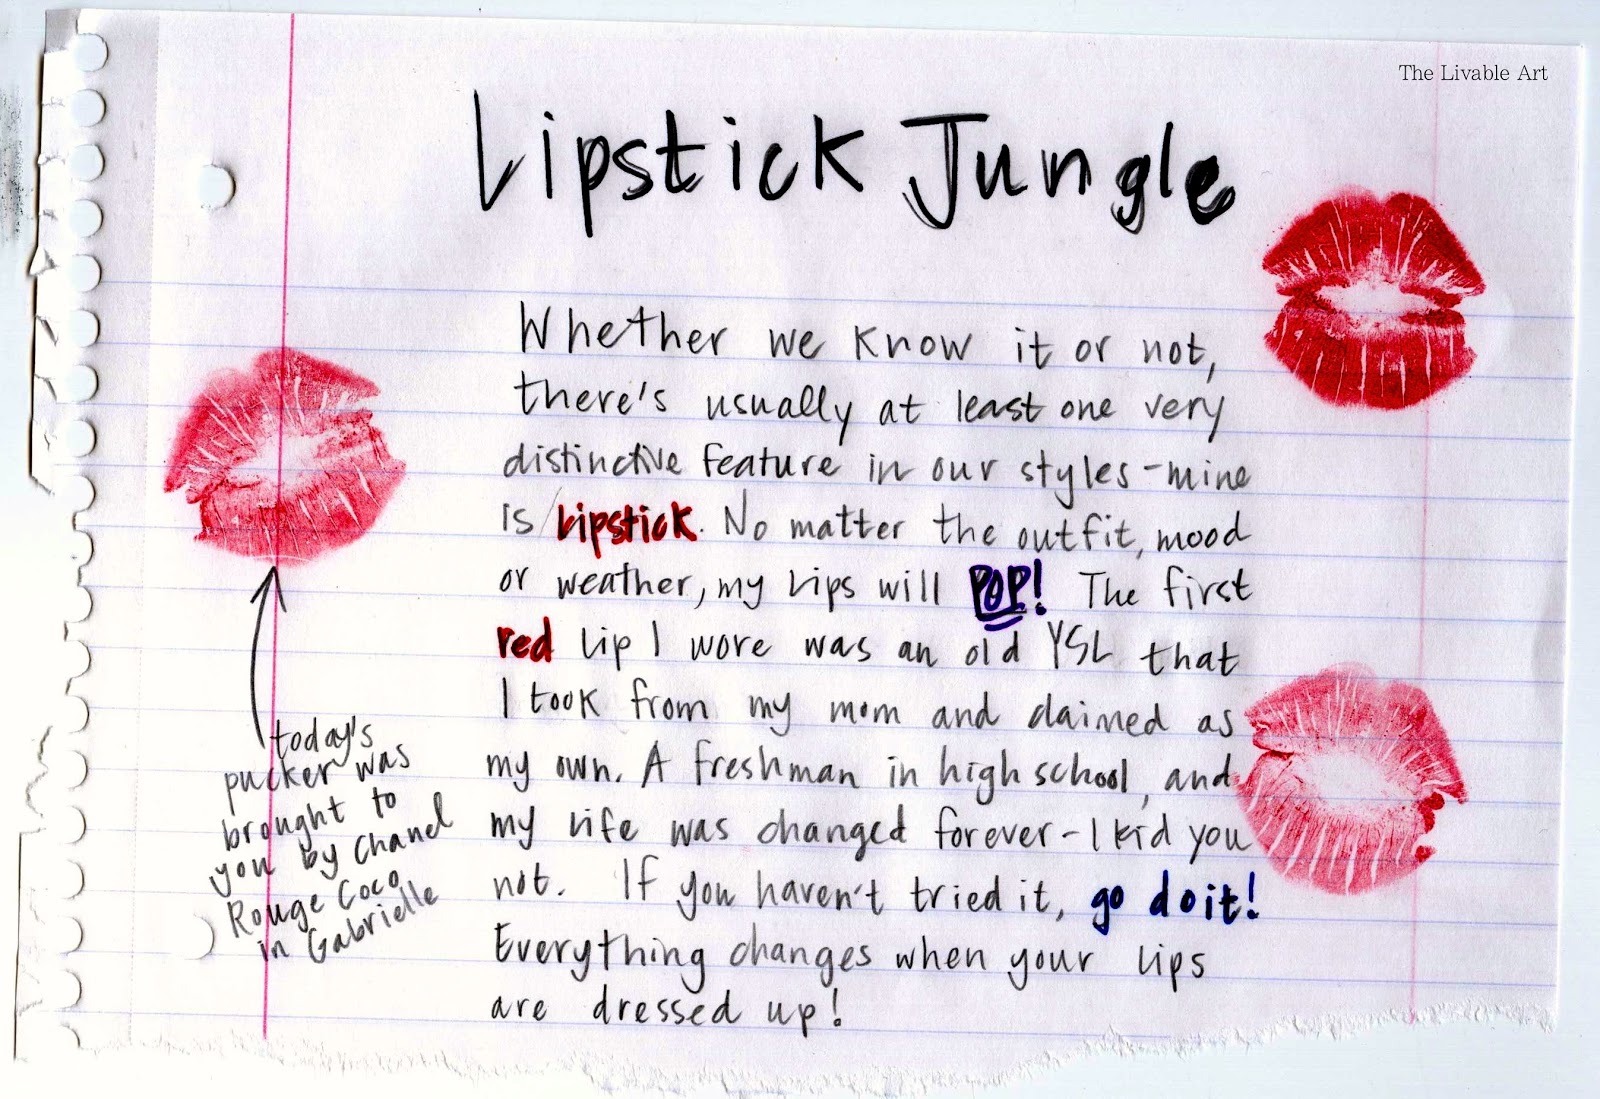 The Livable Art
Lipstick Jungle
Whether we know it or not,
there's usually at least one very
distinctive feature in our styles - mine
is lipstick. No matter the outfit, mood
or weather, my lips will POP! The first
red lip I wore was an old YSL that
I took from my mom and claimed as
my own. A freshman in high school, and
my life was changed forever - I kid you
not. If you haven't tried it, go do it!
Everything changes when your lips
are dressed up!
today's
pucker was
brought to
you by Chanel
Rouge Coco
in Gabrielle